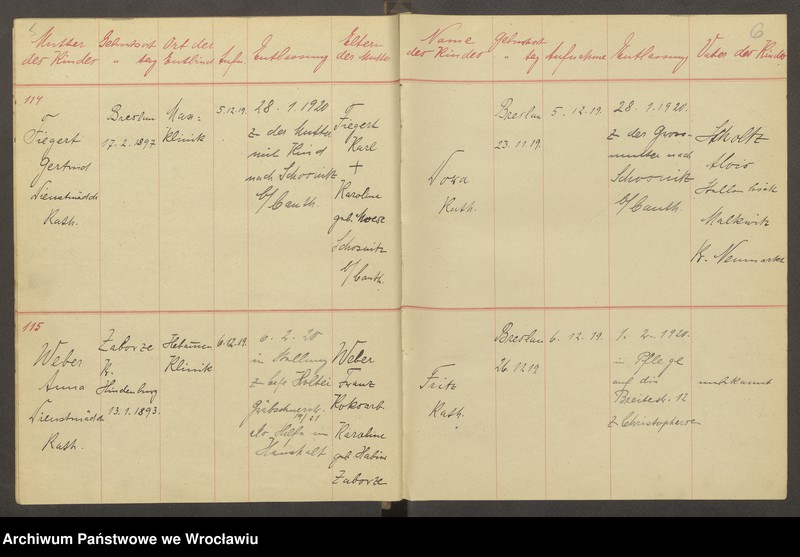 6
Mutter der Kinder
Geburtsort " tag
Ort der Entbind
Aufn.
Entlassung
Eltern der Mutter
Name der Kinder
Geburtsort " tag
Aufnahme
Entlassung
Vater der Kinder
114
Fiegert
Gertrud
Dienstmädch
Kath.
Breslau
17.2.1897
Max=
Klinik
5.12.19.
28.1.1920
z der Mutter
mit Kind
nach Schosnitz
b/Canth.
Fiegert
Karl
+
Karoline
geb.
Schosnitz
b/Canth.
Dora
Kath.
Breslau
23.11.19.
5.12.19.
28.1.1920.
z der Gross=
mutter nach
Schosnitz
b/Canth.
Scholtz
Alois
Malkwitz
Kr. Neumarkt
115
Weber
Anna
Dienstmädch
Kath.
Zaborze
Kr.
Hindenburg
13.1.1893.
Hebammen
Klinik
6.12.19.
2.20
in Stellung
z
als Hilfe im
Haushalt
Weber
Franz
Karoline
geb.
Zaborze
Fritz
Kath.
Breslau
26.1119
6.12.19.
1.2.1920.
in Pflege
auf die
Breitestr. 12
z Christophersen
unbekannt
Archiwum Państwowe we Wrocławiu